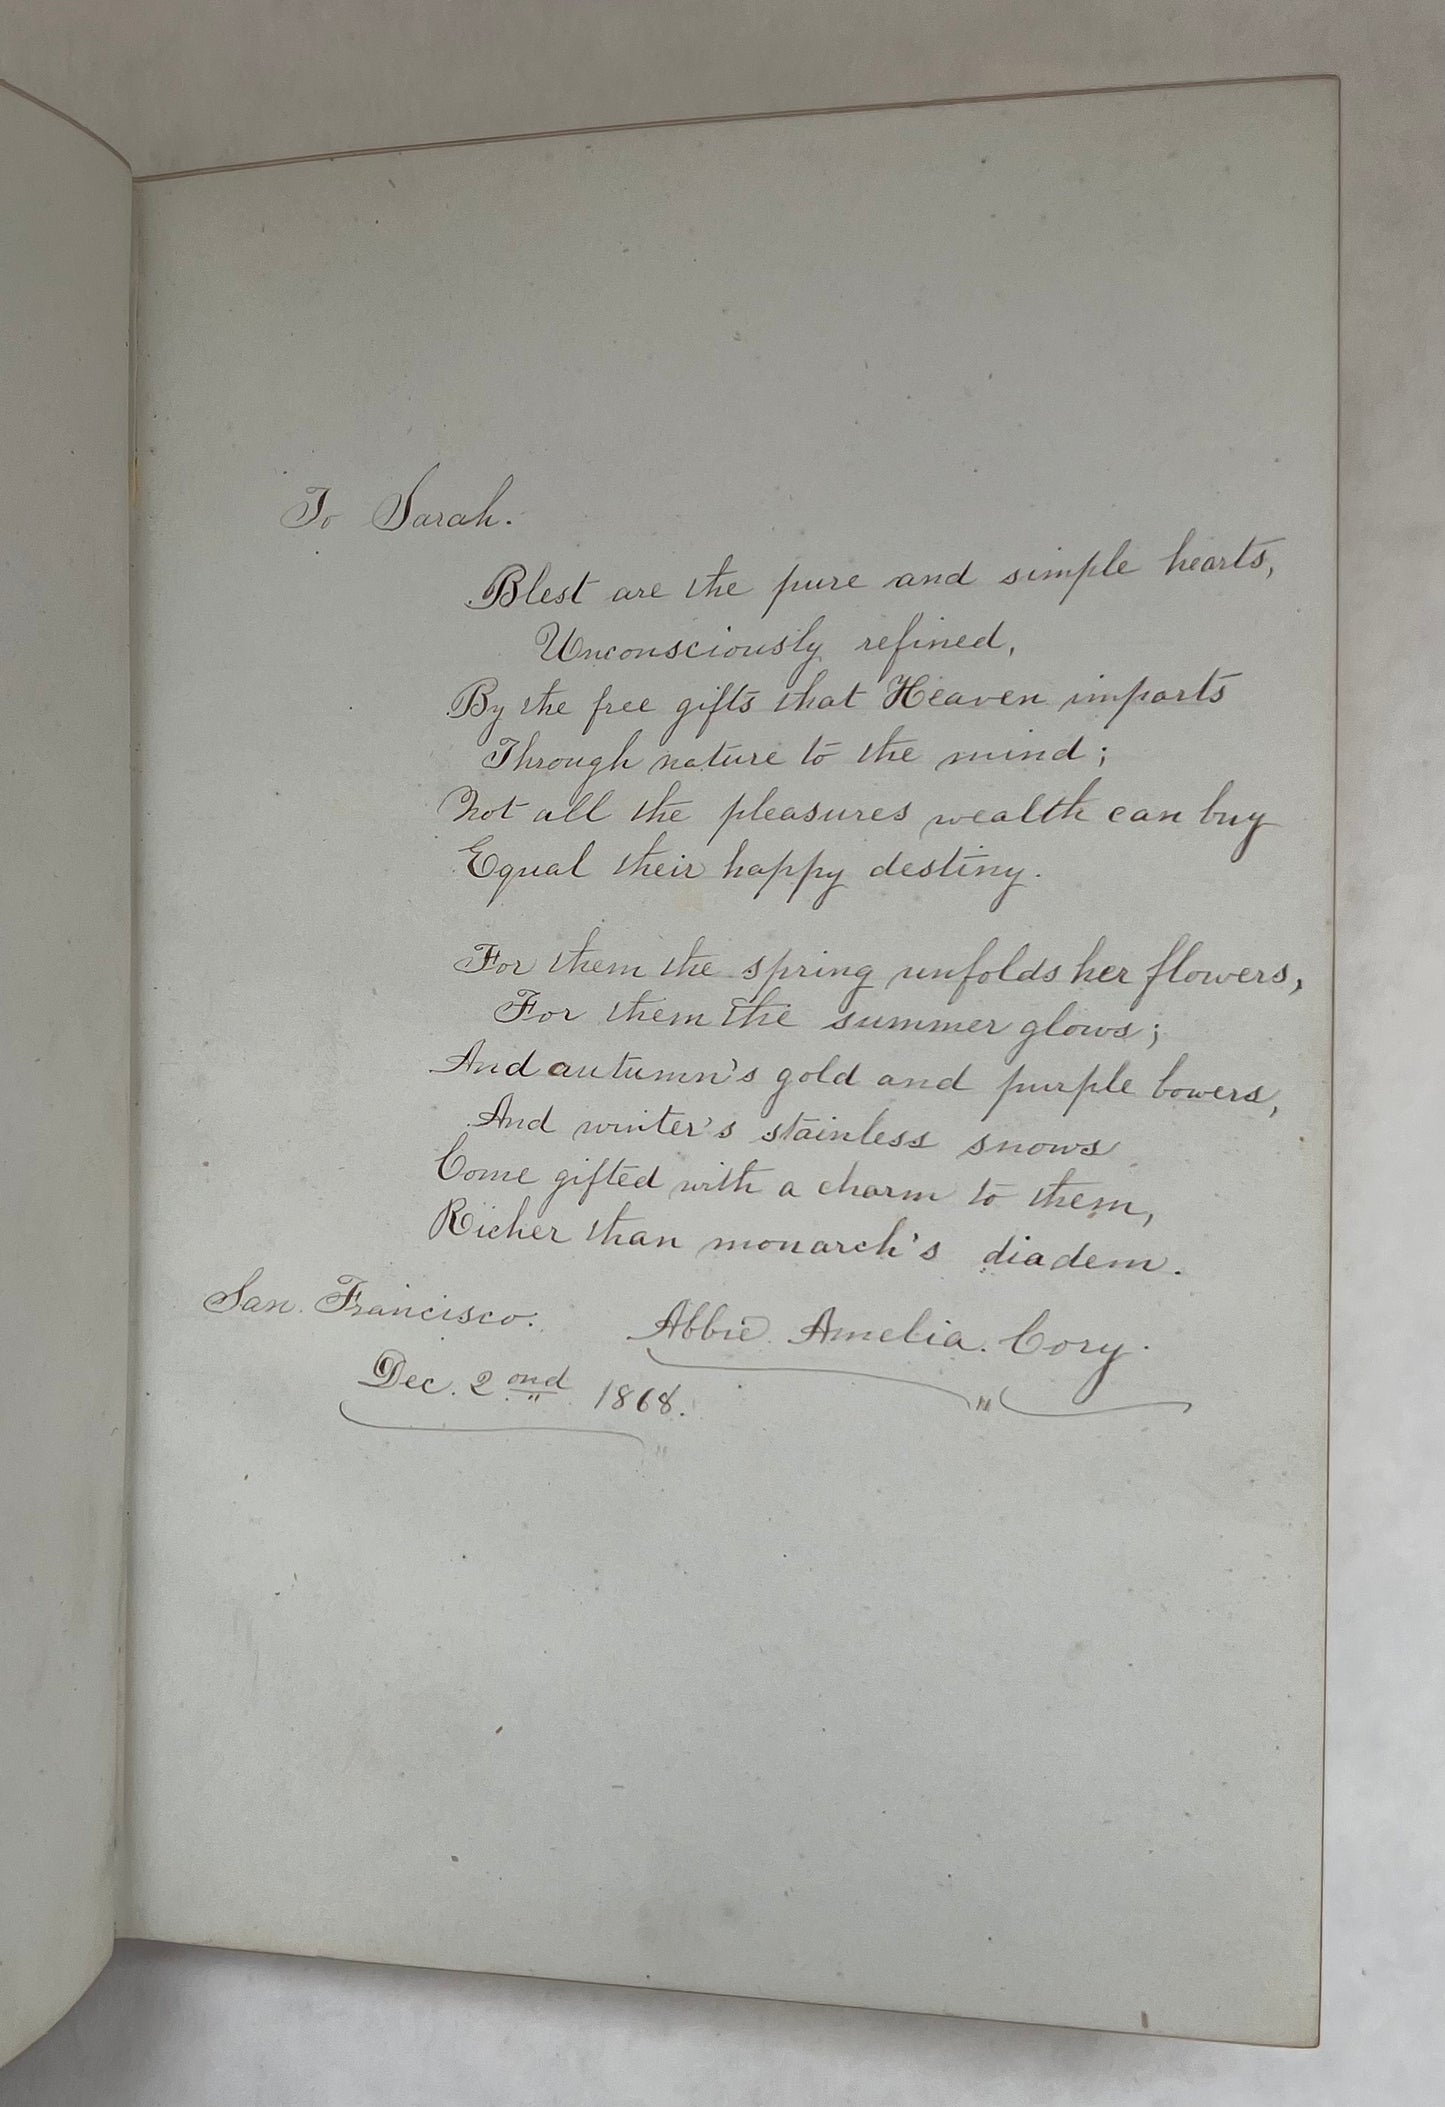 To Sarah.
Blest are the pure and simple hearts,
Unconsciously refined,
By the free gifts that Heaven imparts
Through nature to the mind;
Not all the pleasures wealth can buy
Equal their happy destiny.
For them the spring unfolds her flowers,
For them the summer glows;
And autumn's gold and purple bowers,
And winter's stainless snows
Come gifted with a charm to them,
Richer than monarch's diadem.
San. Francisco.
Abbie. Amelia. Cory.
Dec. 2ond 1868.